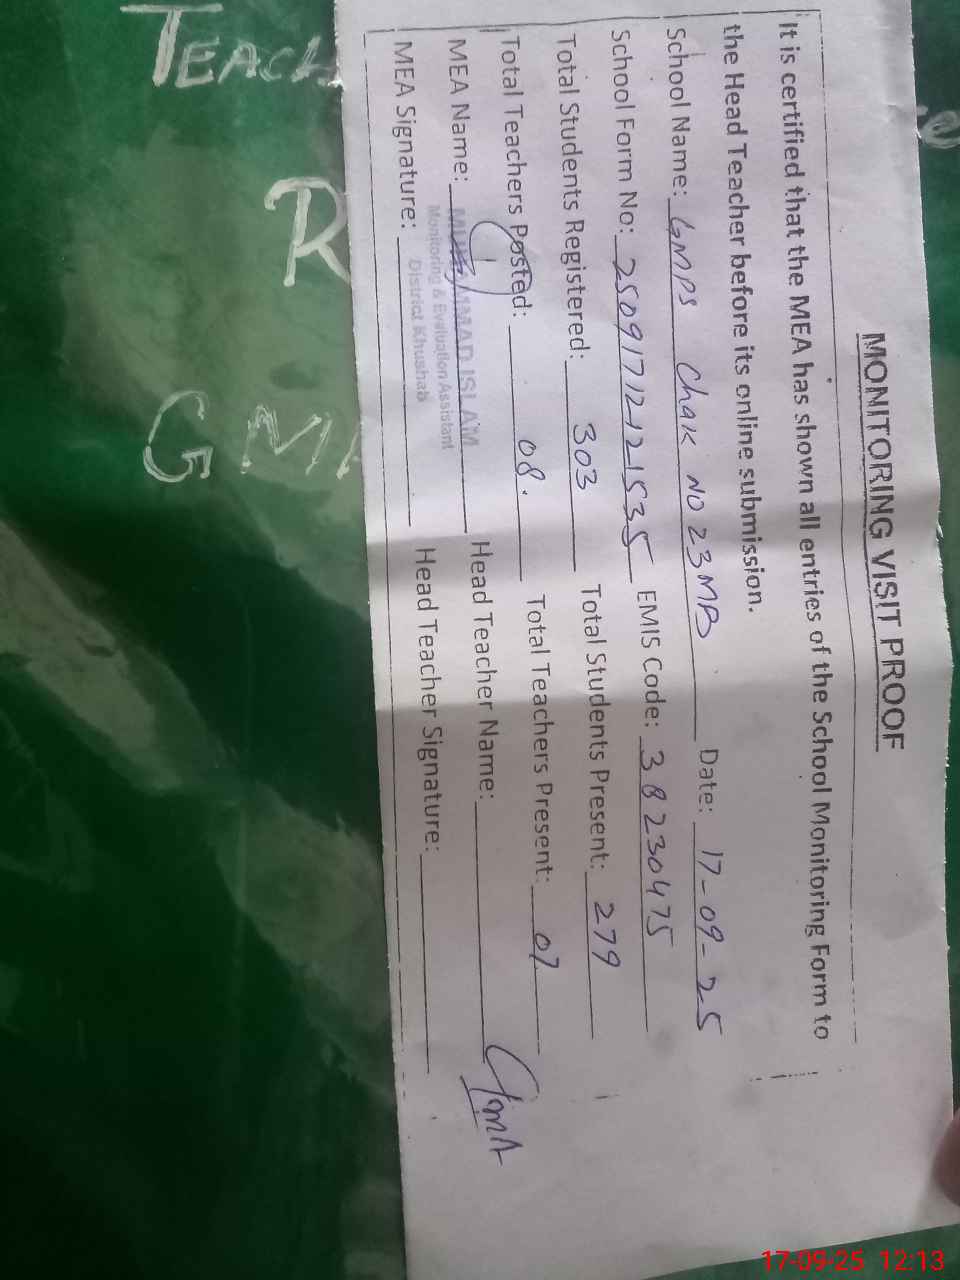 MONITORING VISIT PROOF
It is certified that the MEA has shown all entries of the School Monitoring Form to
the Head Teacher before its online submission.
School Name: GMPS Chak NO 23MB Date: 17-09-25
School Form No: 25091712121535 EMIS Code: 38230475
Total Students Registered: 303 Total Students Present: 279
Total Teachers Posted: 08. Total Teachers Present: 07
MEA Name: MUHAMMAD ISLAM Head Teacher Name:
Monitoring & Evaluation Assistant
District Khushab
MEA Signature: Head Teacher Signature:
TEACH
R
G M
17-09-25 12:13